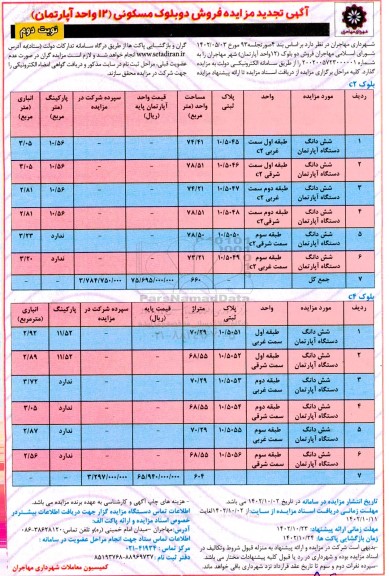 آگهی تجدید مزایده فروش دو بلوک مسکونی (۱۲ واحد آپارتمان)
نوبت دوم
شهرداری مهاجران در نظر دارد بر اساس بند ۴ صورتجلسه ۹۳ مورخ ۱۴۰۲/۰۵/۰۲
شورای اسلامی مهاجران فروش دو بلوک (۱۲ واحدی آپارتمان) شهر مهاجران را به
را از طریق سامانه الکترونیکی دولت به مزایده
گذارد. کلیه مراحل برگزاری مزایده از دریافت اسناد مزایده تا ارائه پیشنهاد مزایده
گران و بازگشایی پاکت ها از طریق درگاه سامانه تدارکات دولت (ستاد) به آدرس
www.setadiran.ir انجام خواهد شد و لازم است مزایده گران در صورت عدم
عضویت قبلی، مراحل ثبت نام در سایت مذکور و دریافت گواهی امضای الکترونیکی را
جهت شرکت در مزایده محقق سازند.
بلوک c2
ردیف مورد مزایده واحد پلاک ثبتی مساحت واحد (متر مربع) قیمت واحد آپارتمان پایه (ریال) سپرده شرکت در مزایده پارکینگ (متر مربع) انباری (متر مربع)
۱ شش دانگ دستگاه آپارتمان طبقه اول سمت غربی c2 ۱۰/۵۰۴۵ ۷۴/۴۱ - - ۱۰/۵۶ ۳/۰۵
۲ شش دانگ دستگاه آپارتمان طبقه اول سمت شرقی c2 ۱۰/۵۰۴۶ ۷۸/۵۱ - - ۱۰/۵۶ ۳/۰۵
۳ شش دانگ دستگاه آپارتمان طبقه دوم سمت غربی c2 ۱۰/۵۰۴۷ ۷۴/۲۱ - - ۱۰/۵۶ ۲/۸۱
۴ شش دانگ دستگاه آپارتمان طبقه دوم سمت شرقی c2 ۱۰/۵۰۴۸ ۷۸/۵۱ - - ۱۰/۵۶ ۲/۸۱
۵ شش دانگ دستگاه آپارتمان طبقه سوم سمت شرقی c2 ۱۰/۵۰۵۰ ۷۸/۵۰ - - ندارد ۳/۲۳
۶ شش دانگ دستگاه آپارتمان طبقه سوم سمت غربی c2 ۱۰/۵۰۴۹ ۷۳/۲۱ - - ندارد ۳/۲۰
۷ جمع کل - - ۶۶۰ ۷۵/۶۹۵/۰۰۰/۰۰۰ ۳/۷۸۴/۷۵۰/۰۰۰ - -
بلوک c4
ردیف مورد مزایده واحد پلاک ثبتی متراژ قیمت پایه (ریال) سپرده شرکت در مزایده پارکینگ انباری (متر مربع)
۱ شش دانگ دستگاه آپارتمان طبقه اول سمت غربی ۱۰/۵۰۵۱ ۷۰/۲۹ ۱۱/۵۲ ۲/۹۳
۲ شش دانگ دستگاه آپارتمان طبقه اول سمت شرقی ۱۰/۵۰۵۲ ۶۸/۵۵ ۱۱/۵۲ ۲/۸۹
۳ شش دانگ دستگاه آپارتمان طبقه دوم سمت غربی ۱۰/۵۰۵۳ ۷۰/۲۹ ندارد ۳/۷۲
۴ شش دانگ دستگاه آپارتمان طبقه دوم سمت شرقی ۱۰/۵۰۵۴ ۶۸/۵۵ ندارد ۳/۰۵
۵ شش دانگ دستگاه آپارتمان طبقه سوم سمت غربی ۱۰/۵۰۵۵ ۷۰/۲۹ ندارد ۲/۸۷
۶ شش دانگ دستگاه آپارتمان طبقه سوم سمت شرقی ۱۰/۵۰۵۶ ۶۸/۵۵ ندارد ۲/۵۶
۶۰۴ ۶۵/۹۴۰/۰۰۰/۰۰۰ ۳/۲۹۷/۰۰۰/۰۰۰
تاریخ انتشار مزایده در سامانه در تاریخ ۱۴۰۲/۱۰/۰۲ می باشد
مهلت زمانی دریافت اسناد مزایده از سایت: از ۱۴۰۲/۱۰/۰۲ لغایت
۱۴۰۲/۱۰/۱۱
مهلت زمانی ارائه پیشنهاد: ۱۴۰۲/۱۰/۲۳
زمان بازگشایی پاکت ها: ۱۴۰۲/۱۰/۲۴
-بدیهی است شرکت در مزایده و ارائه پیشنهاد به منزله قبول شروط و تکالیف در
اسناد مزایده بوده و شهرداری در رد یا قبول کلیه پیشنهادات مختار می باشد
-سپرده نفرات دوم و سوم تا تاریخ عقد قرارداد نزد شهرداری باقی خواهد ماند.
- هزینه های چاپ آگهی و کارشناسی به عهده برنده مزایده می باشد.
اطلاعات تماس دستگاه مزایده گزار جهت دریافت اطلاعات بیشتر در
خصوص اسناد مزایده و ارائه پاکت الف:
آدرس: مهاجران -میدان امام خمینی (ره) و تلفن تماس: ۳۸۶۲۸۱۲۰-۰۸۶
اطلاعات تماس ستاد جهت انجام مراحل عضویت در سامانه :
مرکز تماس : ۴۱۹۳۴-۰۲۱
دفتر ثبت نام : ۸۸۹۶۹۷۳۷-۸۵۱۹۳۷۶۸
کمیسیون معاملات شهرداری مهاجران